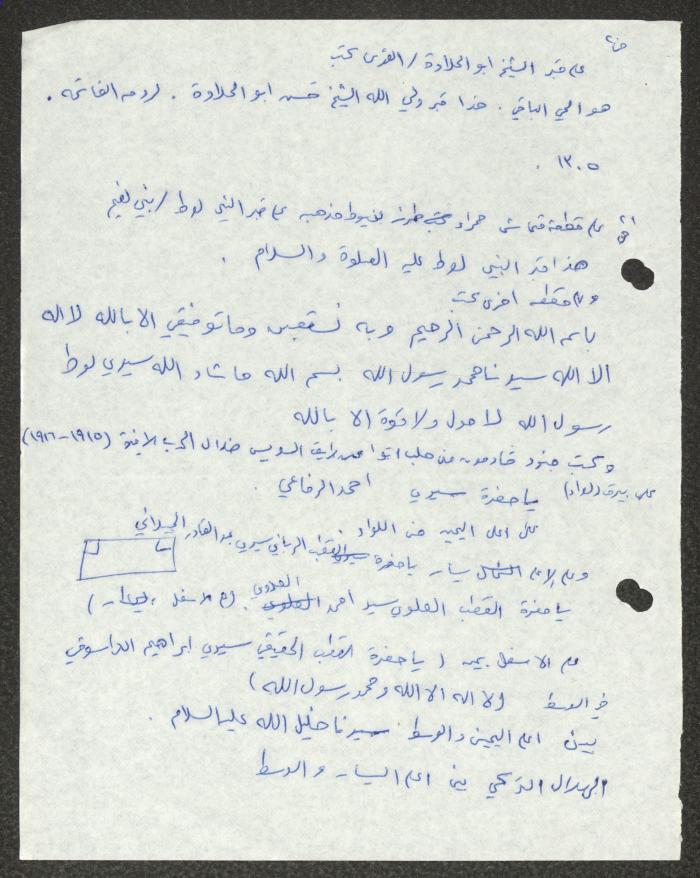 على قبر الشيخ ابو الحلاوة / القدس كتب
هو الحي الباقي . هذا قبر ولي الله الشيخ حسن ابو الحلاوة . لروحه الفاتحه .
١٣٠٥ .
على قطعة قماش حمراء طرز بخيوط مذهبه على قبر النبي لوط / بني نعيم
هذا قبر النبي لوط عليه الصلوة والسلام .
وعلى قطعه اخرى كتب
باسم الله الرحمن الرحيم وبه نستعين وما توفيقي الا بالله لا اله
الا الله سيدنا محمد رسول الله بسم الله ما شاء الله سيدي لوط
رسول الله لا حول ولا قوة الا بالله
وكتب جنود قادمون من حلب اتوا عن طريق السويس خلال الحرب (١٩١٥-١٩١٦)
على بيرق (لواء) يا حضرة سيدي احمد الرفاعي .
على اعلى اليمين من اللواء .
وعلى الاعلى يسار يا حضرة القطب الرباني سيدي عبد القادر الجيلاني
يا حضرة القطب العلوي سيد احمد البدوي . (على الاسفل يسار)
على الاسفل يمين (يا حضرة القطب الحقيقي سيدي ابراهيم الداسوقي
في الوسط (لا اله الا الله ومحمد رسول الله)
بين اعلى اليمين والوسط سيدنا خليل الله عليه السلام .
الهلال التركي بين اعلى اليسار والوسط